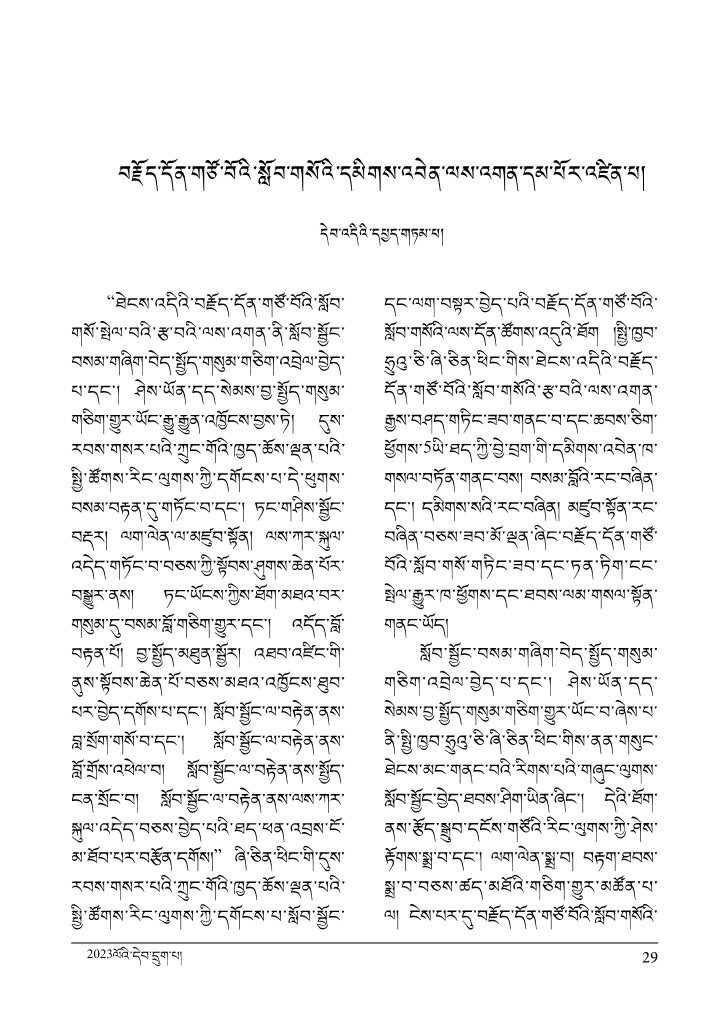 བརྗོད་དོན་གཙོ་བོའི་སློབ་གསོའི་དམིགས་འབེན་ལས་འགན་དམ་པོར་འཛིན་པ།
དེབ་འདིའི་དཔྱད་གཏམ་པ།
“ཐེངས་འདིའི་བརྗོད་དོན་གཙོ་བོའི་སློབ་
གསོ་སྤེལ་བའི་རྩ་བའི་ལས་འགན་ནི་སློབ་སྦྱོང་
བསམ་གཞིག་བེད་སྤྱོད་གསུམ་གཅིག་འབྲེལ་བྱེད་
པ་དང་། ཤེས་ཡོན་དད་སེམས་བྱ་སྤྱོད་གསུམ་
གཅིག་གྱུར་ཡོང་རྒྱུ་རྒྱུན་འཁྱོངས་བྱས་ཏེ། དུས་
རབས་གསར་པའི་ཀྲུང་གོའི་ཁྱད་ཆོས་ལྡན་པའི་
སྤྱི་ཚོགས་རིང་ལུགས་ཀྱི་དགོངས་པ་དེ་ཕུགས་
བསམ་བརྟན་དུ་གཏོང་བ་དང་། ཏང་གཤིས་སྦྱོང་
བརྡར། ལག་ལེན་ལ་མཛུབ་སྟོན། ལས་ཀར་སྐུལ་
འདེད་གཏོང་བ་བཅས་ཀྱི་སྟོབས་ཤུགས་ཆེན་པོར་
བསྒྱུར་ནས། ཏང་ཡོངས་ཀྱིས་ཐོག་མཐའ་བར་
གསུམ་དུ་བསམ་བློ་གཅིག་གྱུར་དང་། འདོད་བློ་
བརྟན་པོ། བྱ་སྤྱོད་མཐུན་སྦྱོར། འཐབ་འཛིང་གི་
ནུས་སྟོབས་ཆེན་པོ་བཅས་མཐའ་འཁྱོངས་ཐུབ་
པར་བྱེད་དགོས་པ་དང་། སློབ་སྦྱོང་ལ་བརྟེན་ནས་
བླ་སྲོག་གསོ་བ་དང་། སློབ་སྦྱོང་ལ་བརྟེན་ནས་
བློ་གྲོས་འཕེལ་བ། སློབ་སྦྱོང་ལ་བརྟེན་ནས་སྤྱོད་
ངན་སྲོང་བ། སློབ་སྦྱོང་ལ་བརྟེན་ནས་ལས་ཀར་
སྐུལ་འདེད་བཅས་བྱེད་པའི་ཐད་ཕན་འབྲས་ངོ་
མ་ཐོབ་པར་བརྩོན་དགོས།” ཞི་ཅིན་ཕིང་གི་དུས་
རབས་གསར་པའི་ཀྲུང་གོའི་ཁྱད་ཆོས་ལྡན་པའི་
སྤྱི་ཚོགས་རིང་ལུགས་ཀྱི་དགོངས་པ་སློབ་སྦྱོང་
དང་ལག་བསྟར་བྱེད་པའི་བརྗོད་དོན་གཙོ་བོའི་
སློབ་གསོའི་ལས་དོན་ཚོགས་འདུའི་ཐོག །སྤྱི་ཁྱབ་
ཧྲུའུ་ཅི་ཞི་ཅིན་ཕིང་གིས་ཐེངས་འདིའི་བརྗོད་
དོན་གཙོ་བོའི་སློབ་གསོའི་རྩ་བའི་ལས་འགན་
རྒྱས་བཤད་གཏིང་ཟབ་གནང་བ་དང་ཆབས་ཅིག་
ཕྱོགས་5ཡི་ཐད་ཀྱི་བྱེ་བྲག་གི་དམིགས་འབེན་ཁ་
གསལ་བཏོན་གནང་བས། བསམ་བློའི་རང་བཞིན་
དང་། དམིགས་སའི་རང་བཞིན། མཛུབ་སྟོན་རང་
བཞིན་བཅས་ཟབ་མོ་ལྡན་ཞིང་བརྗོད་དོན་གཙོ་
བོའི་སློབ་གསོ་གཏིང་ཟབ་དང་ཏན་ཏིག་ངང་
སྤེལ་རྒྱུར་ཁ་ཕྱོགས་དང་ཐབས་ལམ་གསལ་སྟོན་
གནང་ཡོད།
སློབ་སྦྱོང་བསམ་གཞིག་བེད་སྤྱོད་གསུམ་
གཅིག་འབྲེལ་བྱེད་པ་དང་། ཤེས་ཡོན་དད་
སེམས་བྱ་སྤྱོད་གསུམ་གཅིག་གྱུར་ཡོང་བ་ཞེས་པ་
ནི་སྤྱི་ཁྱབ་ཧྲུའུ་ཅི་ཞི་ཅིན་ཕིང་གིས་ནན་གསུང་
ཐེངས་མང་གནང་བའི་རིགས་པའི་གཞུང་ལུགས་
སློབ་སྦྱོང་བྱེད་ཐབས་ཤིག་ཡིན་ཞིང་། དེའི་ཐོག་
ནས་རྩོད་སྒྲུབ་དངོས་གཙོའི་རིང་ལུགས་ཀྱི་ཤེས་
རྟོགས་སྨྲ་བ་དང་། ལག་ལེན་སྨྲ་བ། བརྟག་ཐབས་
སྨྲ་བ་བཅས་ཚད་མཐོའི་གཅིག་གྱུར་མཚོན་པ་
ལ། ངེས་པར་དུ་བརྗོད་དོན་གཙོ་བོའི་སློབ་གསོའི་
2023ལོའི་དེབ་དྲུག་པ།
29